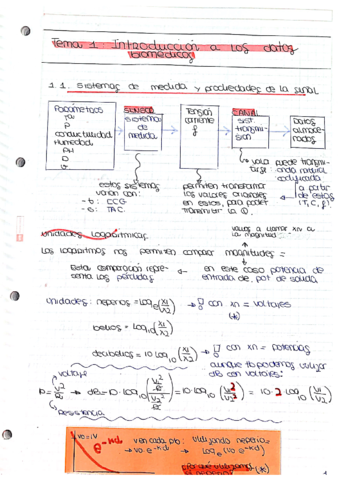 Tema 1. Introducción a los datos
biomédicos
1.1. Sistemas de medida y propiedades de la señal
Parámetros
Tª
P
conductividad
Humedad
PH
SENSOR
sistema
de
medida
Tensión
corriente
f
SEÑAL
sist.
transmi-
sión
Datos
almace-
nados
estos sistemas
varían con:
-t: ECG
-e: TAC.
permiten transformar
los valores originales
en estos, para poder
transmitir la
puede transmi-
codificada
a partir
de estos
(T, C, f)
Unidades logarítmicas.
vamos a llamar xn a
la magnitud
Los logaritmos nos permiten comparar magnitudes =
Esta comparación repre-
senta las pérdidas
en este caso potencia de
entrada de pot de salida
unidades: neperios = log e (x1/x2) → con xn = voltajes
(*)
belios = log10 (x1/x2)
decibelios = 10 log10 (x1/x2) → con xn = potencias
aunque tb podemos utilizar
dB con voltajes:
voltaje
P = V²/R → dB = 10 · log10 = 10 · log10 (V1²/V2²) = 10 · 2 log10 (V1/V2)
Resistencia
V0 = 1V
e^-αd
ven cada pto: utilizando neperios
→ V0 e^-αd → log e (V0 e^-αd)
(*)
4